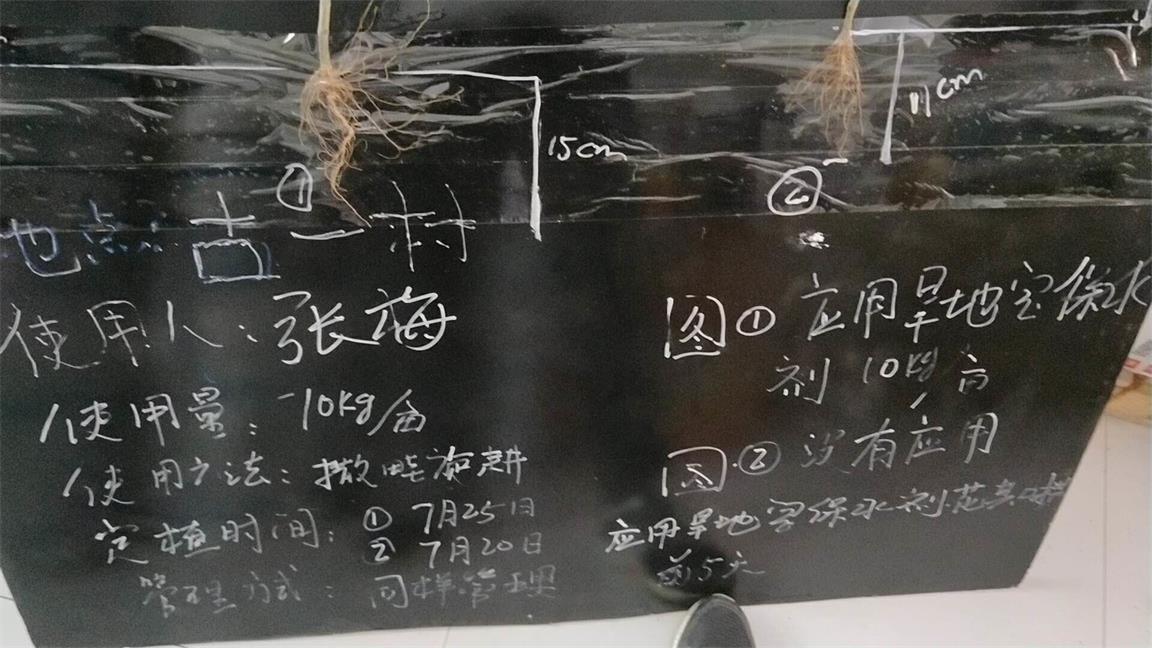 15cm
11cm
①
②
地点：古一村
使用人：张海
使用量：10kg/亩
使用方法：撒畦旋耕
定植时间：① 7月25日
② 7月20日
管理方式：同样管理
图① 应用旱地宝保水
剂10kg/亩
图② 没有应用
应用旱地宝保水剂花
前5天